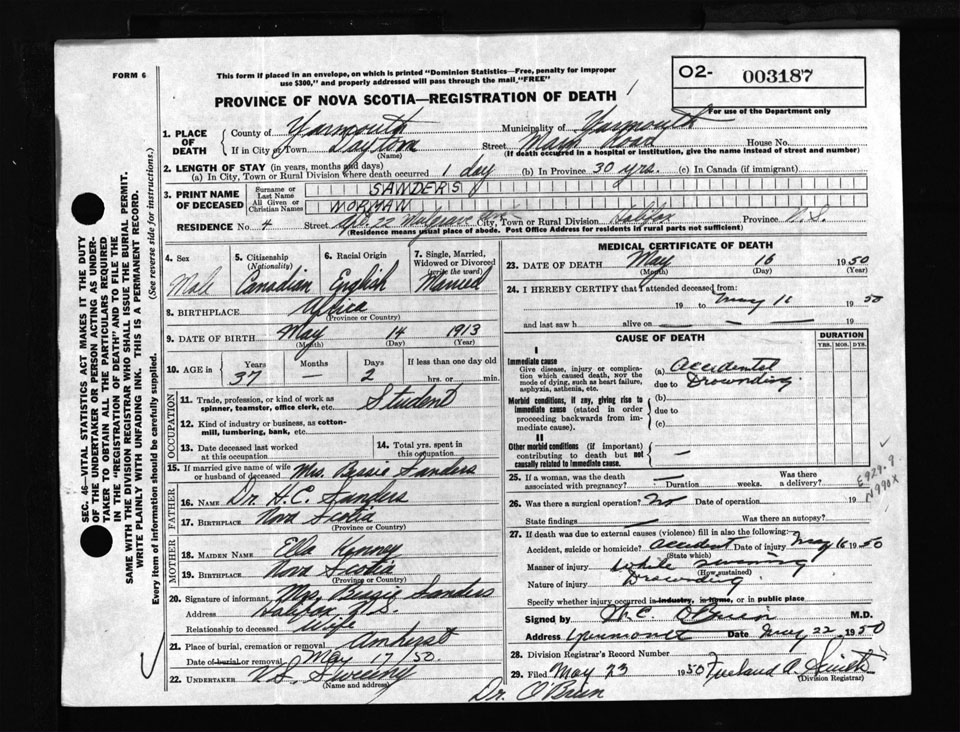 FORM 6
This form if placed in an envelope, on which is printed "Dominion Statistics—Free, penalty for improper
use $300," and properly addressed will pass through the mail "FREE"
O2- 003187
For use of the Department only
PROVINCE OF NOVA SCOTIA—REGISTRATION OF DEATH
1. PLACE OF DEATH
County of Yarmouth Municipality of Yarmouth
If in City or Town Dayton (Name) Street Main Road House No.
(If death occurred in a hospital or institution, give the name instead of street and number)
2. LENGTH OF STAY (in years, months and days)
(a) In City, Town or Rural Division where death occurred 1 day (b) In Province 30 yrs. (c) In Canada (if immigrant)
3. PRINT NAME OF DECEASED
Surname or Last Name SANDERS
All Given or Christian Names NORMAN
RESIDENCE No. 4 Street Apt. 22 Mulgrave City, Town or Rural Division Halifax Province N.S.
(Residence means usual place of abode. Post Office Address for residents in rural parts not sufficient)
4. Sex Male
5. Citizenship (Nationality) Canadian
6. Racial Origin English
7. Single, Married, Widowed or Divorced (write the word) Married
8. BIRTHPLACE Africa
(Province or Country)
9. DATE OF BIRTH May 14 1913
(Month) (Day) (Year)
10. AGE in Years 37 Months — Days 2 If less than one day old hrs. or min.
OCCUPATION
11. Trade, profession, or kind of work as spinner, teamster, office clerk, etc. Student
12. Kind of industry or business, as cotton-mill, lumbering, bank, etc.
13. Date deceased last worked at this occupation
14. Total yrs. spent in this occupation
15. If married give name of wife or husband of deceased Mrs. Bessie Sanders
FATHER
16. NAME Dr. H.C. Sanders
17. BIRTHPLACE Nova Scotia
(Province or Country)
MOTHER
18. MAIDEN NAME Ella Kenney
19. BIRTHPLACE Nova Scotia
(Province or Country)
20. Signature of informant Mrs. Bessie Sanders
Address Halifax N.S.
Relationship to deceased Wife
21. Place of burial, cremation or removal Amherst
Date of burial or removal May 17 50.
22. UNDERTAKER V.S. Sweeny
(Name and address)
MEDICAL CERTIFICATE OF DEATH
23. DATE OF DEATH May 16 1950
(Month) (Day) (Year)
24. I HEREBY CERTIFY that I attended deceased from:
19 to May 16 1950
and last saw h alive on — — — 19
CAUSE OF DEATH
DURATION
YRS. MOS. DYS.
I
Immediate cause
Give disease, injury or complication which caused death, not the mode of dying, such as heart failure, asphyxia, asthenia, etc.
(a) Accidental
due to Drownding
Morbid conditions, if any, giving rise to immediate cause (stated in order proceeding backwards from immediate cause).
(b)
due to
(c)
II
Other morbid conditions (if important) contributing to death but not causally related to immediate cause.
25. If a woman, was the death associated with pregnancy? Duration weeks. Was there a delivery?
26. Was there a surgical operation? No Date of operation 19
State findings Was there an autopsy?
E929.9
N990X
27. If death was due to external causes (violence) fill in also the following:
Accident, suicide or homicide? Accident Date of injury May 16 1950
(State which)
Manner of injury While swimming
(How sustained)
Nature of injury Drownding
Specify whether injury occurred in industry, in home, or in public place
Signed by O'Brien M.D.
Address Yarmouth Date May 22 1950
28. Division Registrar's Record Number
29. Filed May 23 1950
(Division Registrar)
Dr. O'Brien
SEC. 46—VITAL STATISTICS ACT MAKES IT THE DUTY
OF THE UNDERTAKER OR PERSON ACTING AS UNDERTAKER TO OBTAIN ALL THE PARTICULARS REQUIRED
IN THE "REGISTRATION OF DEATH" AND TO FILE THE
SAME WITH THE DIVISION REGISTRAR WHO SHALL ISSUE THE BURIAL PERMIT.
WRITE PLAINLY WITH UNFADING INK. THIS IS A PERMANENT RECORD.
Every item of information should be carefully supplied. (See reverse side for instructions.)